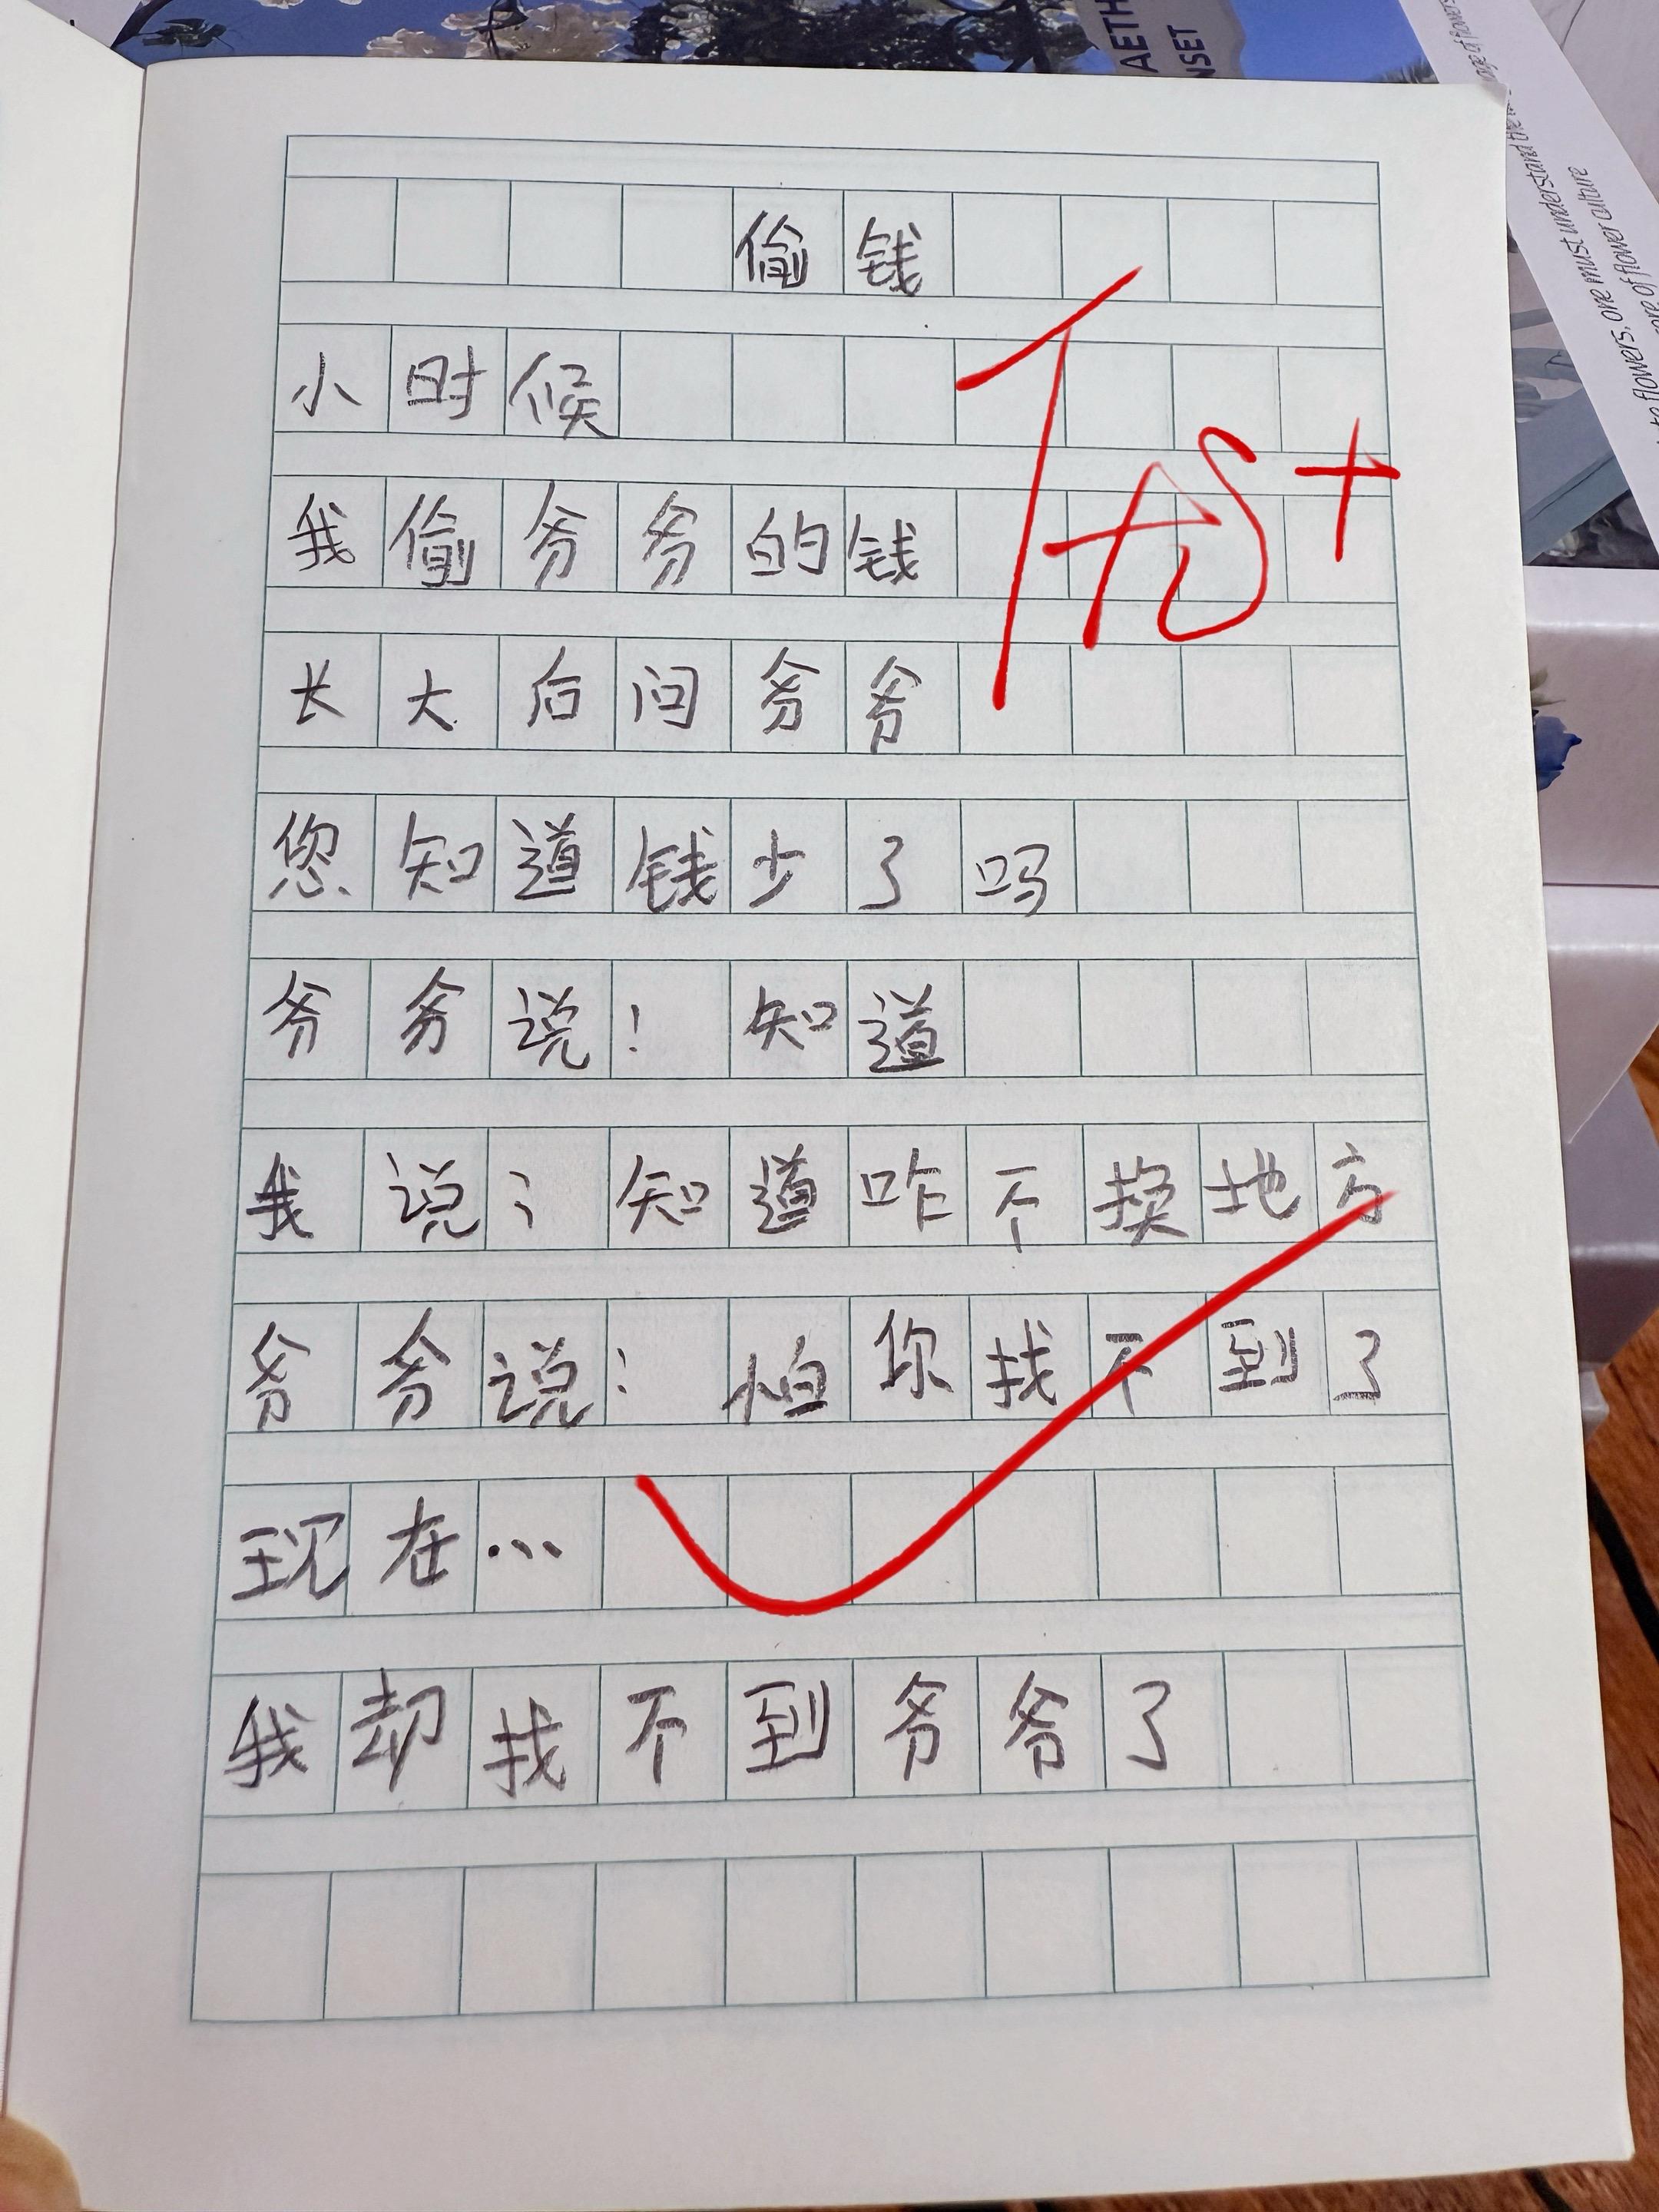 AETH
NSET
flowers, one must understand the
core of flower culture
偷钱
小时候
我偷爷爷的钱
长大后问爷爷
您知道钱少了吗
爷爷说：知道
我说：知道咋不换地方
爷爷说：怕你找不到了
现在…
我却找不到爷爷了